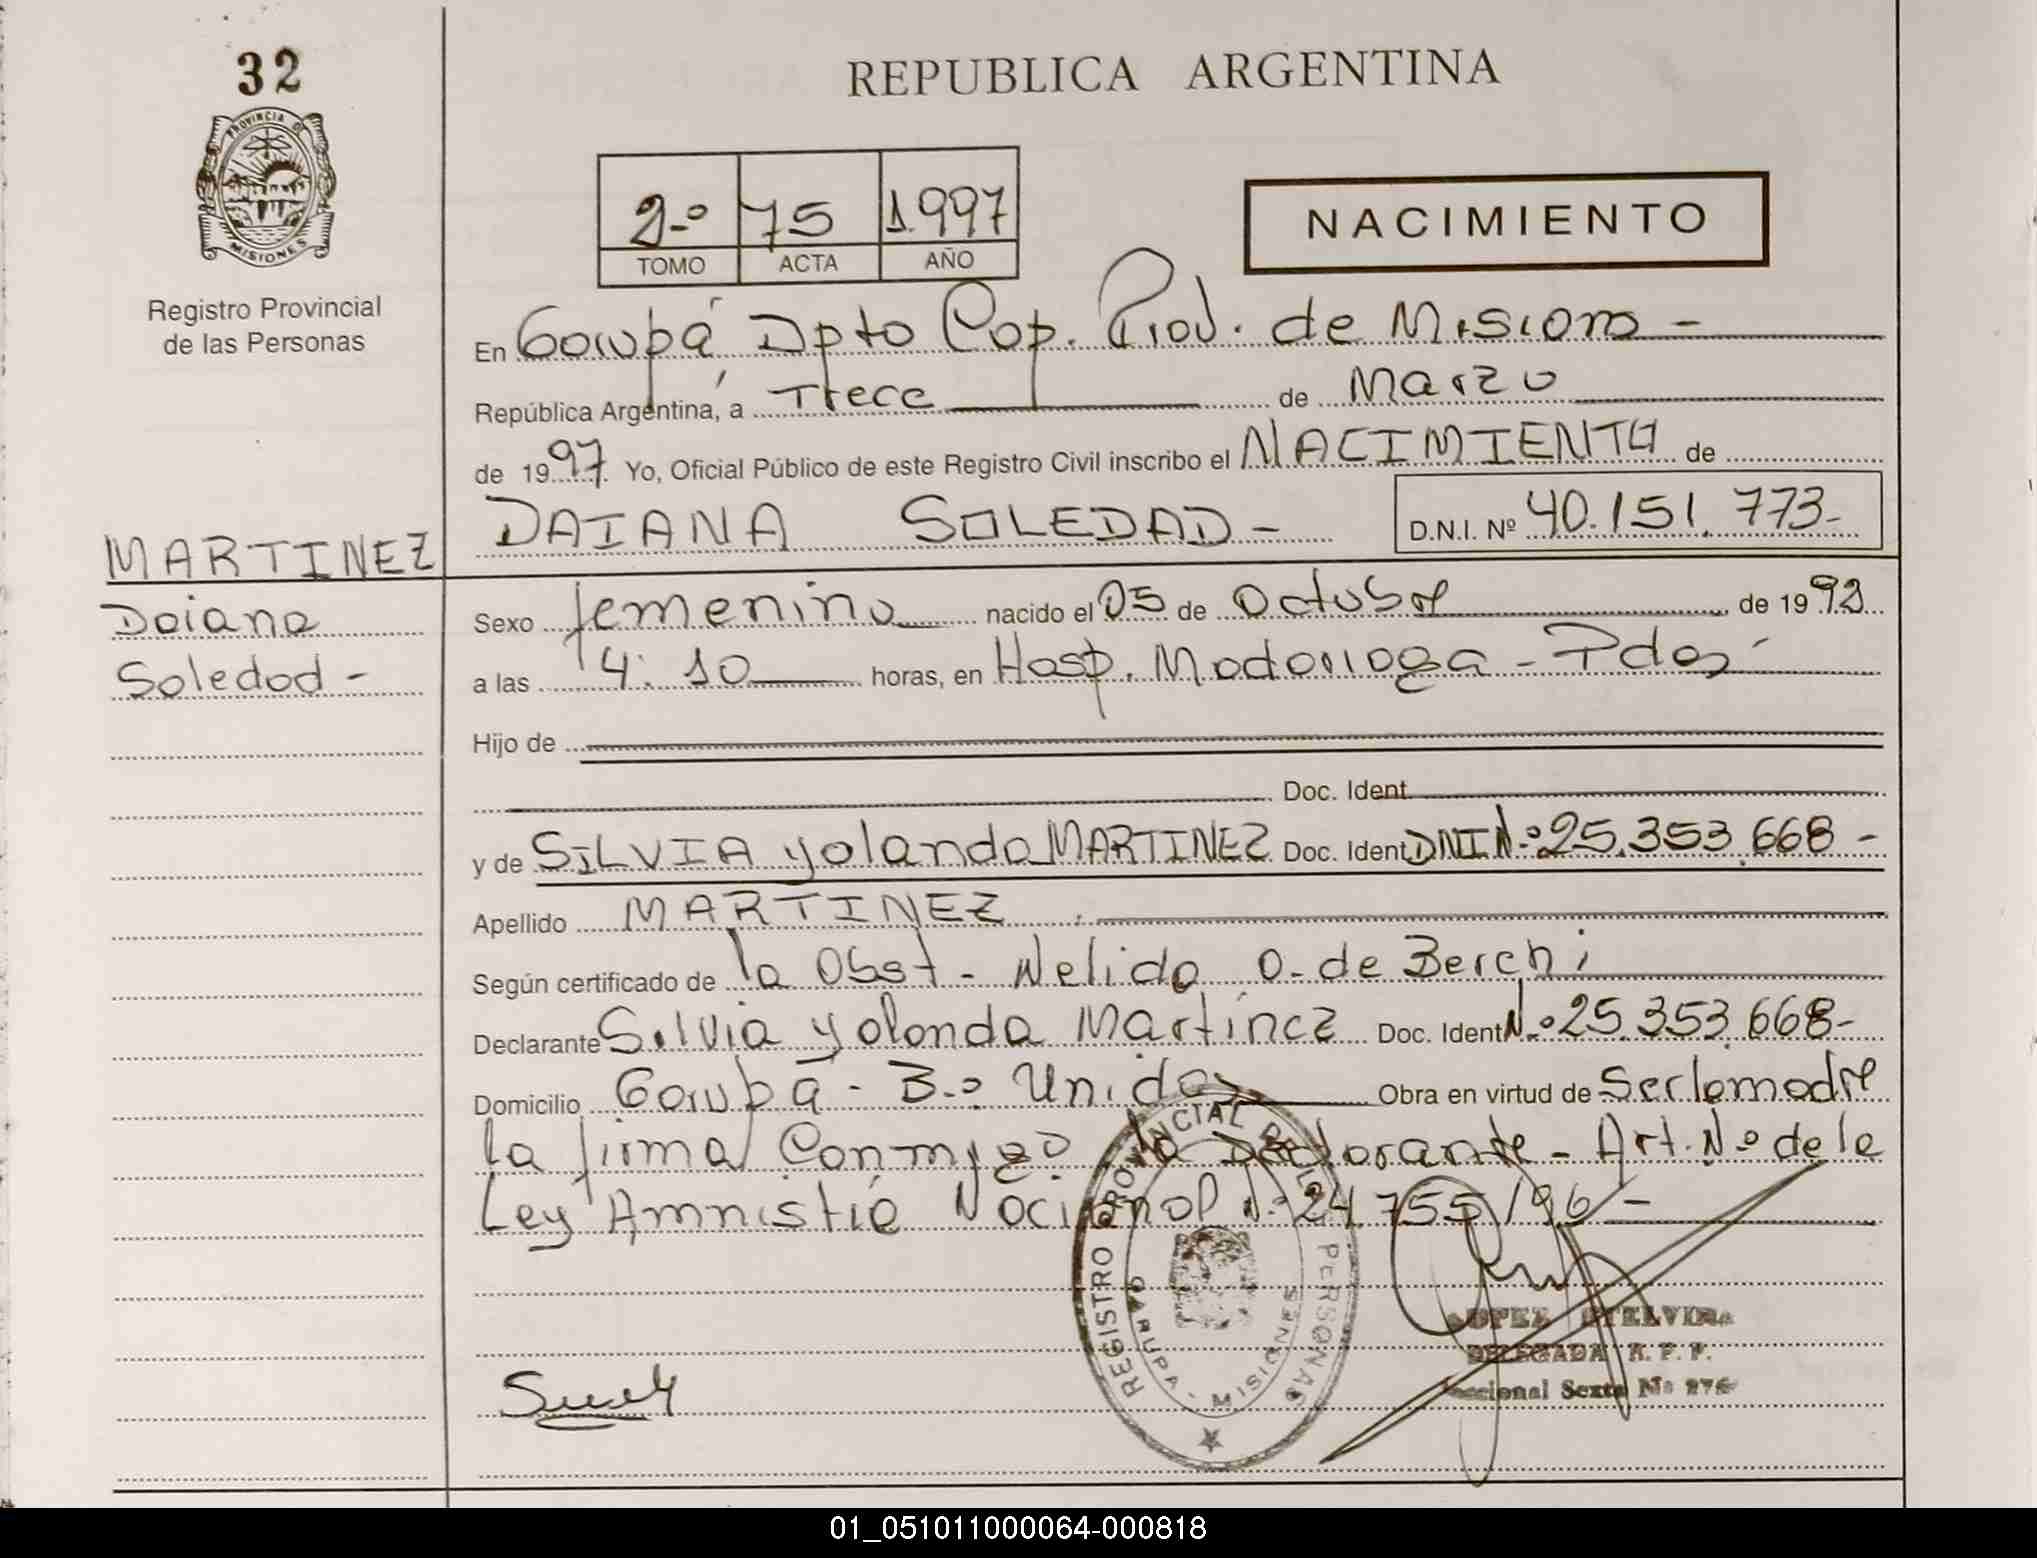 32
REPUBLICA ARGENTINA
PROVINCIA DE
MISIONES
2º 75 1.997
TOMO ACTA AÑO
NACIMIENTO
Registro Provincial
de las Personas
En Garupá Dpto Cap. Prov. de Misiones -
República Argentina, a Trece de Marzo
de 1997 Yo, Oficial Público de este Registro Civil inscribo el NACIMIENTO de
DAIANA SOLEDAD - D.N.I. Nº 40.151.773-
MARTINEZ
Daiana
Soledad -
Sexo femenino nacido el 05 de Octubre de 1992
a las 14:10 horas, en Hosp. Madariaga - Pdas
Hijo de
Doc. Ident.
y de SILVIA Yolanda MARTINEZ Doc. Ident. DNI Nº 25.353.668 -
Apellido MARTINEZ
Según certificado de la Obst - Nelida O. de Berchi
Declarante Silvia Yolanda Martinez Doc. Ident. Nº 25.353.668-
Domicilio Garupá - Bº Unidos Obra en virtud de Ser la madre
la firma Conmigo la Declarante - Art. Nº de la
Ley Amnistia Nacional Nº 24.755/96 -
REGISTRO PROVINCIAL DE LAS PERSONAS
GARUPA - MISIONES
LOPEZ ETELVINA
DELEGADA R. P. P.
Seccional Sexta Nº 276
01_051011000064-000818